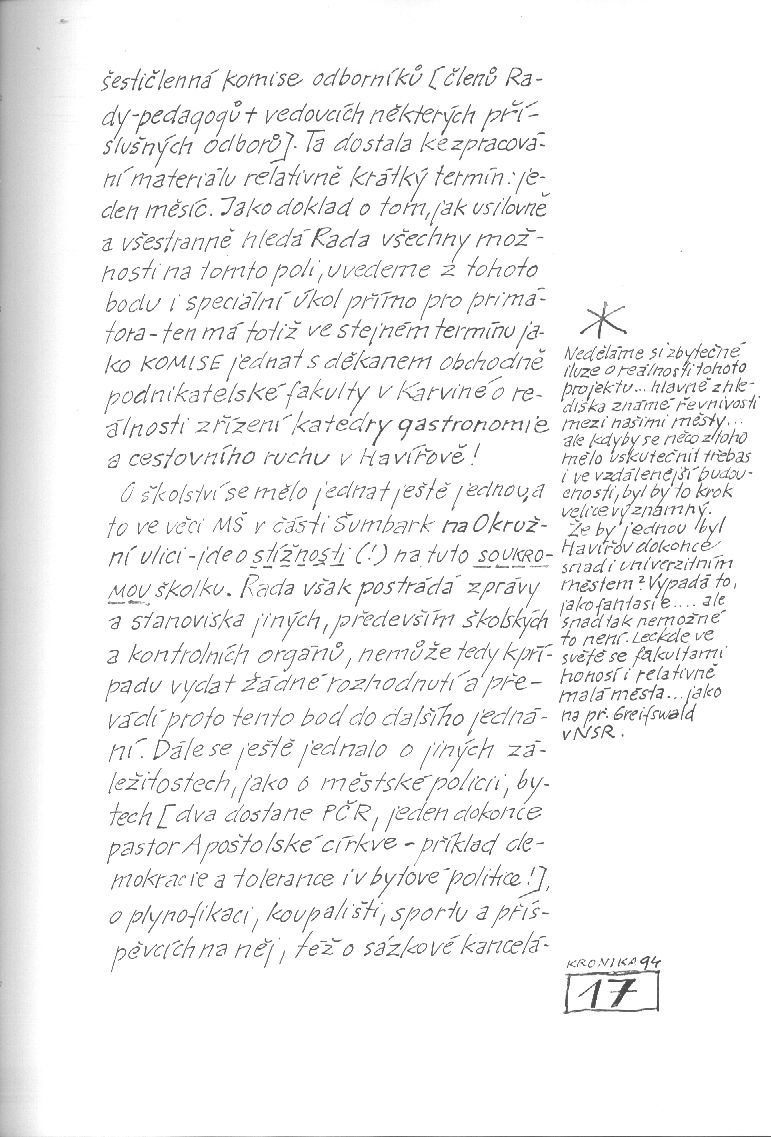 šestičlenná komise odborníků [členů Ra-
dy-pedagogů + vedoucích některých pří-
slušných odborů]. Ta dostala ke zpracová-
ní materiálu relativně krátký termín: je-
den měsíc. Jako doklad o tom, jak usilovně
a všestranně hledá Rada všechny mož-
nosti na tomto poli, uvedeme z tohoto
bodu i speciální úkol přímo pro primá-
tora - ten má totiž ve stejném termínu ja-
ko KOMISE jednat s děkanem obchodně
podnikatelské fakulty v Karviné o re-
álnosti zřízení katedry gastronomie
a cestovního ruchu v Havířově!
O školství se mělo jednat ještě jednou, a
to ve věci MŠ v části Šumbark na Okruž-
ní ulici - jde o stížnosti (!) na tuto SOUKRO-
MOU školku. Rada však postrádá zprávy
a stanoviska jiných, především školských
a kontrolních orgánů, nemůže tedy k pří-
padu vydat žádné rozhodnutí a pře-
vádí proto tento bod do dalšího jedná-
ní. Dále se ještě jednalo o jiných zá-
ležitostech, jako o městské policii, by-
tech [dva dostane PČR, jeden dokonce
pastor Apoštolské církve - příklad de-
mokracie a tolerance i v bytové politice!],
o plynofikaci, koupališti, sportu a přís-
pěvcích na něj, též o sázkové kancelá-
Neděláme si zbytečné
iluze o reálnosti tohoto
projektu... hlavně z hle-
diska známé řevnivosti
mezi našimi městy...
ale kdyby se něco z toho
mělo uskutečnit třebas
i ve vzdálenější budou-
cnosti, byl by to krok
velice významný.
Že by jednou byl
Havířov dokonce
snad i univerzitním
městem? Vypadá to,
jako fantasie.... ale
snad tak nemožné
to není. Leckde ve
světě se fakultami
honosí i relativně
malá města... jako
na př. Greifswald
v NSR.
KRONIKA 94
17